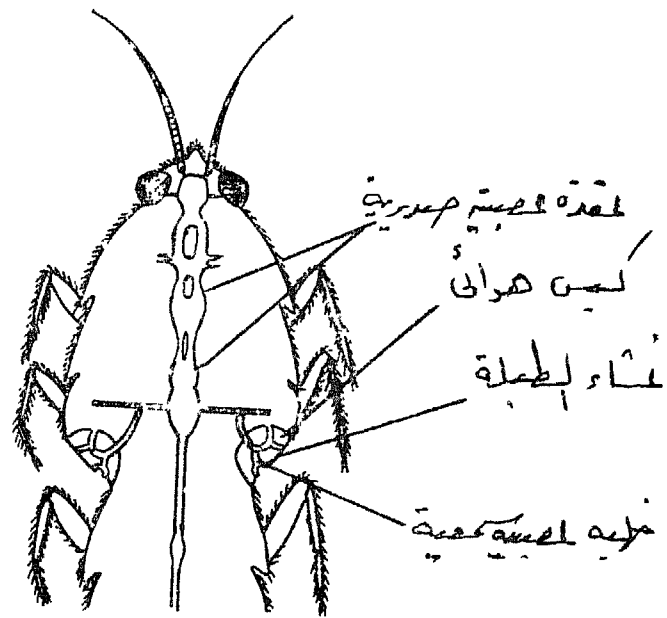 عقدة عصبية صدرية
كيس هوائى
غشاء الطبلة
خليه عصبية سمعية